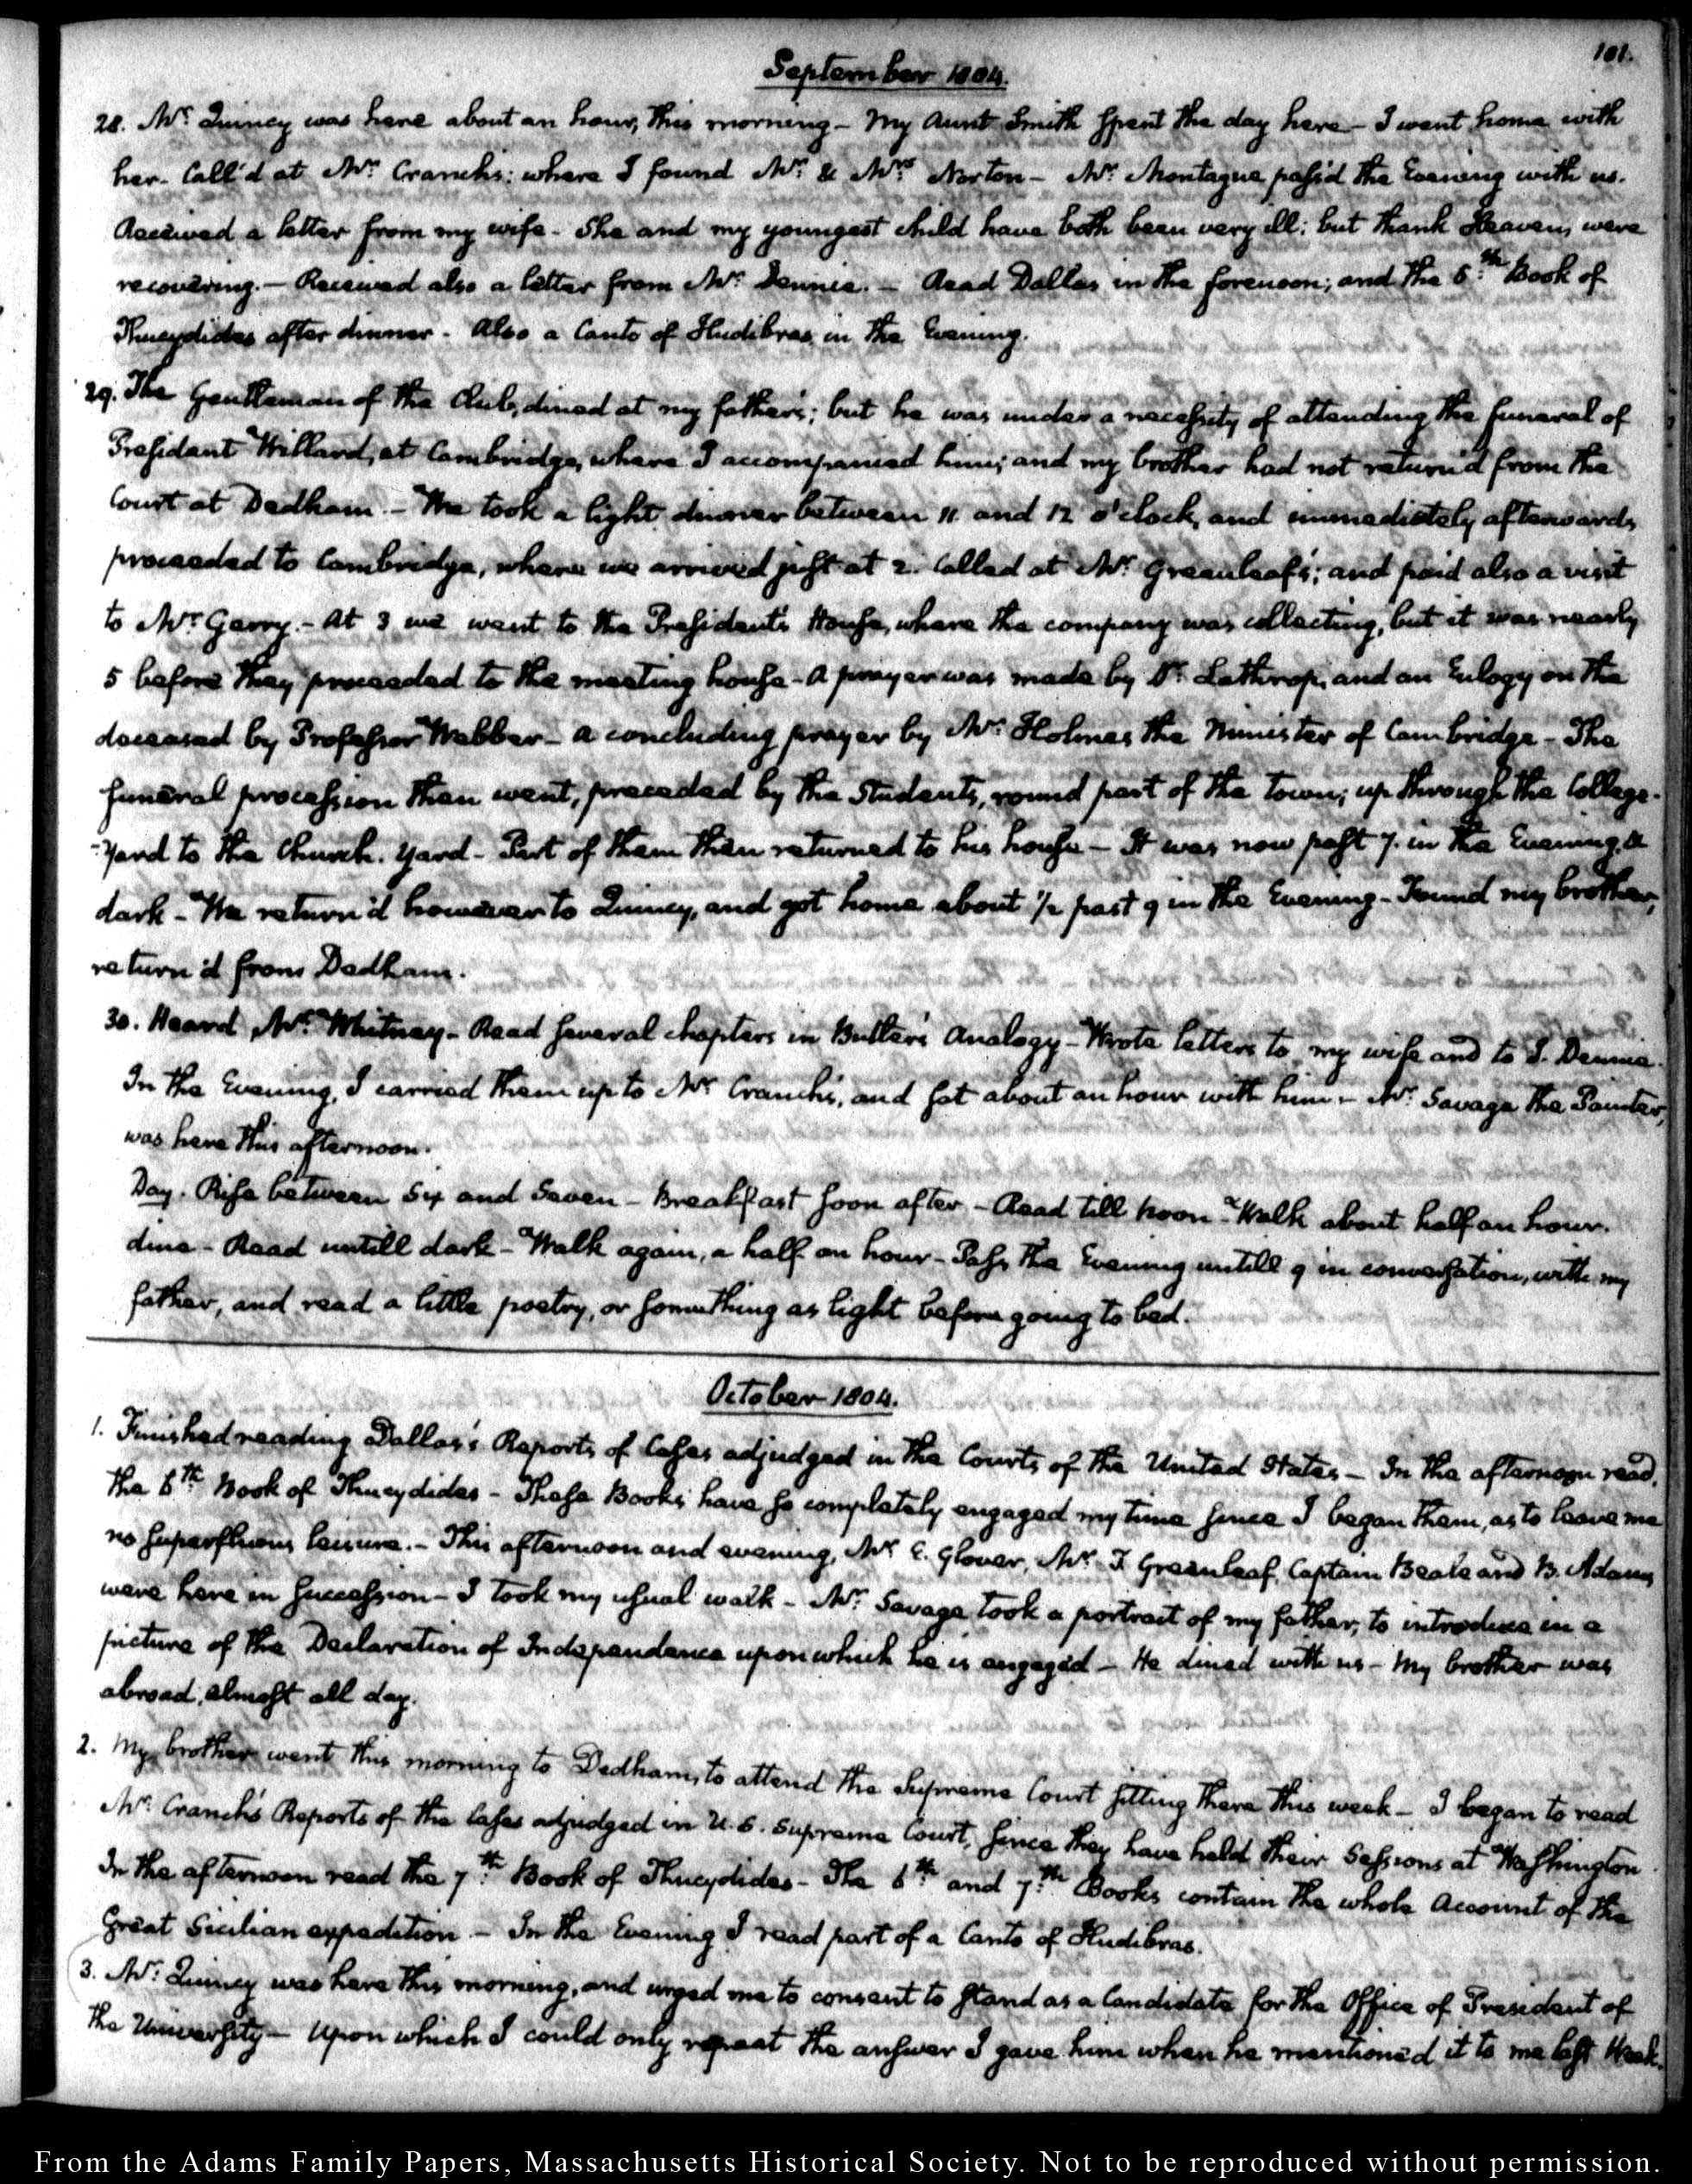 101.
September 1804.
28. Mr. Quincy was here about an hour, this morning - My Aunt Smith spent the day here - I went home with
her. Call'd at Mr. Cranch's: where I found Mr. & Mrs. Norton - Mr. Montague pass'd the Evening with us.
Received a letter from my wife - She and my youngest child have both been very ill; but thank Heaven, were
recovering. - Received also a letter from Mr. Dennie. - Read Dallas in the forenoon; and the 5th. Book of
Thucydides after dinner - Also a Canto of Hudibras, in the Evening.
29. The Gentlemen of the Club, dined at my father's; but he was under a necessity of attending the funeral of
President Willard, at Cambridge, where I accompanied him; and my brother had not return'd from the
Court at Dedham. - We took a light dinner between 11. and 12 o'clock, and immediately afterwards,
proceeded to Cambridge, where we arrived just at 2. Called at Mr. Greenleaf's; and paid also a visit
to Mr. Gerry. - At 3 we went to the President's House, where the company was collecting, but it was nearly
5 before they proceeded to the meeting house - A prayer was made by Dr. Lathrop, and an Eulogy on the
deceased by Professor Webber - a concluding prayer by Mr. Holmes the Minister of Cambridge - The
funeral procession then went, preceded by the Students, round part of the town; up through the College-
-Yard to the Church. Yard - Part of them then returned to his house - It was now past 7. in the Evening, &
dark - We return'd however to Quincy, and got home about 1/2 past 9 in the Evening - Found my brother,
return'd from Dedham.
30. Heard Mr. Whitney - Read several chapters in Butler's Analogy - Wrote letters to my wife and to J. Dennie.
In the Evening, I carried them up to Mr. Cranch's, and sat about an hour with him - Mr. Savage the Painter,
was here this afternoon.
Day. Rise between Six and Seven - Breakfast soon after - Read till Noon - Walk about half an hour.
dine - Read untill dark - Walk again, a half an hour - Pass the Evening untill 9 in conversation, with my
father, and read a little poetry, or something as light before going to bed.
October 1804.
1. Finished reading Dallas's Reports of Cases adjudged in the Courts of the United States - In the afternoon read,
the 6th Book of Thucydides - These Books have so completely engaged my time since I began them, as to leave me
no superfluous leisure. - This afternoon and evening, Mr. E. Glover, Mr. T. Greenleaf, Captain Beale and B. Adams
were here in succession - I took my usual walk - Mr. Savage took a portrait of my father, to introduce in a
picture of the Declaration of Independence upon which he is engaged - He dined with us - My brother was
abroad, almost all day.
2. My brother went this morning to Dedham, to attend the Supreme Court sitting there this week - I began to read
Mr. Cranch's Reports of the Cases adjudged in U.S. Supreme Court, since they have held their Sessions at Washington.
In the afternoon read the 7th. Book of Thucydides - The 6th. and 7th. Books contain the whole Account of the
Great Sicilian expedition - In the Evening I read part of a Canto of Hudibras.
3. Mr. Quincy was here this morning, and urged me to consent to stand as a Candidate for the Office of President of
the University - Upon which I could only repeat the answer I gave him when he mentioned it to me last Week.
From the Adams Family Papers, Massachusetts Historical Society. Not to be reproduced without permission.